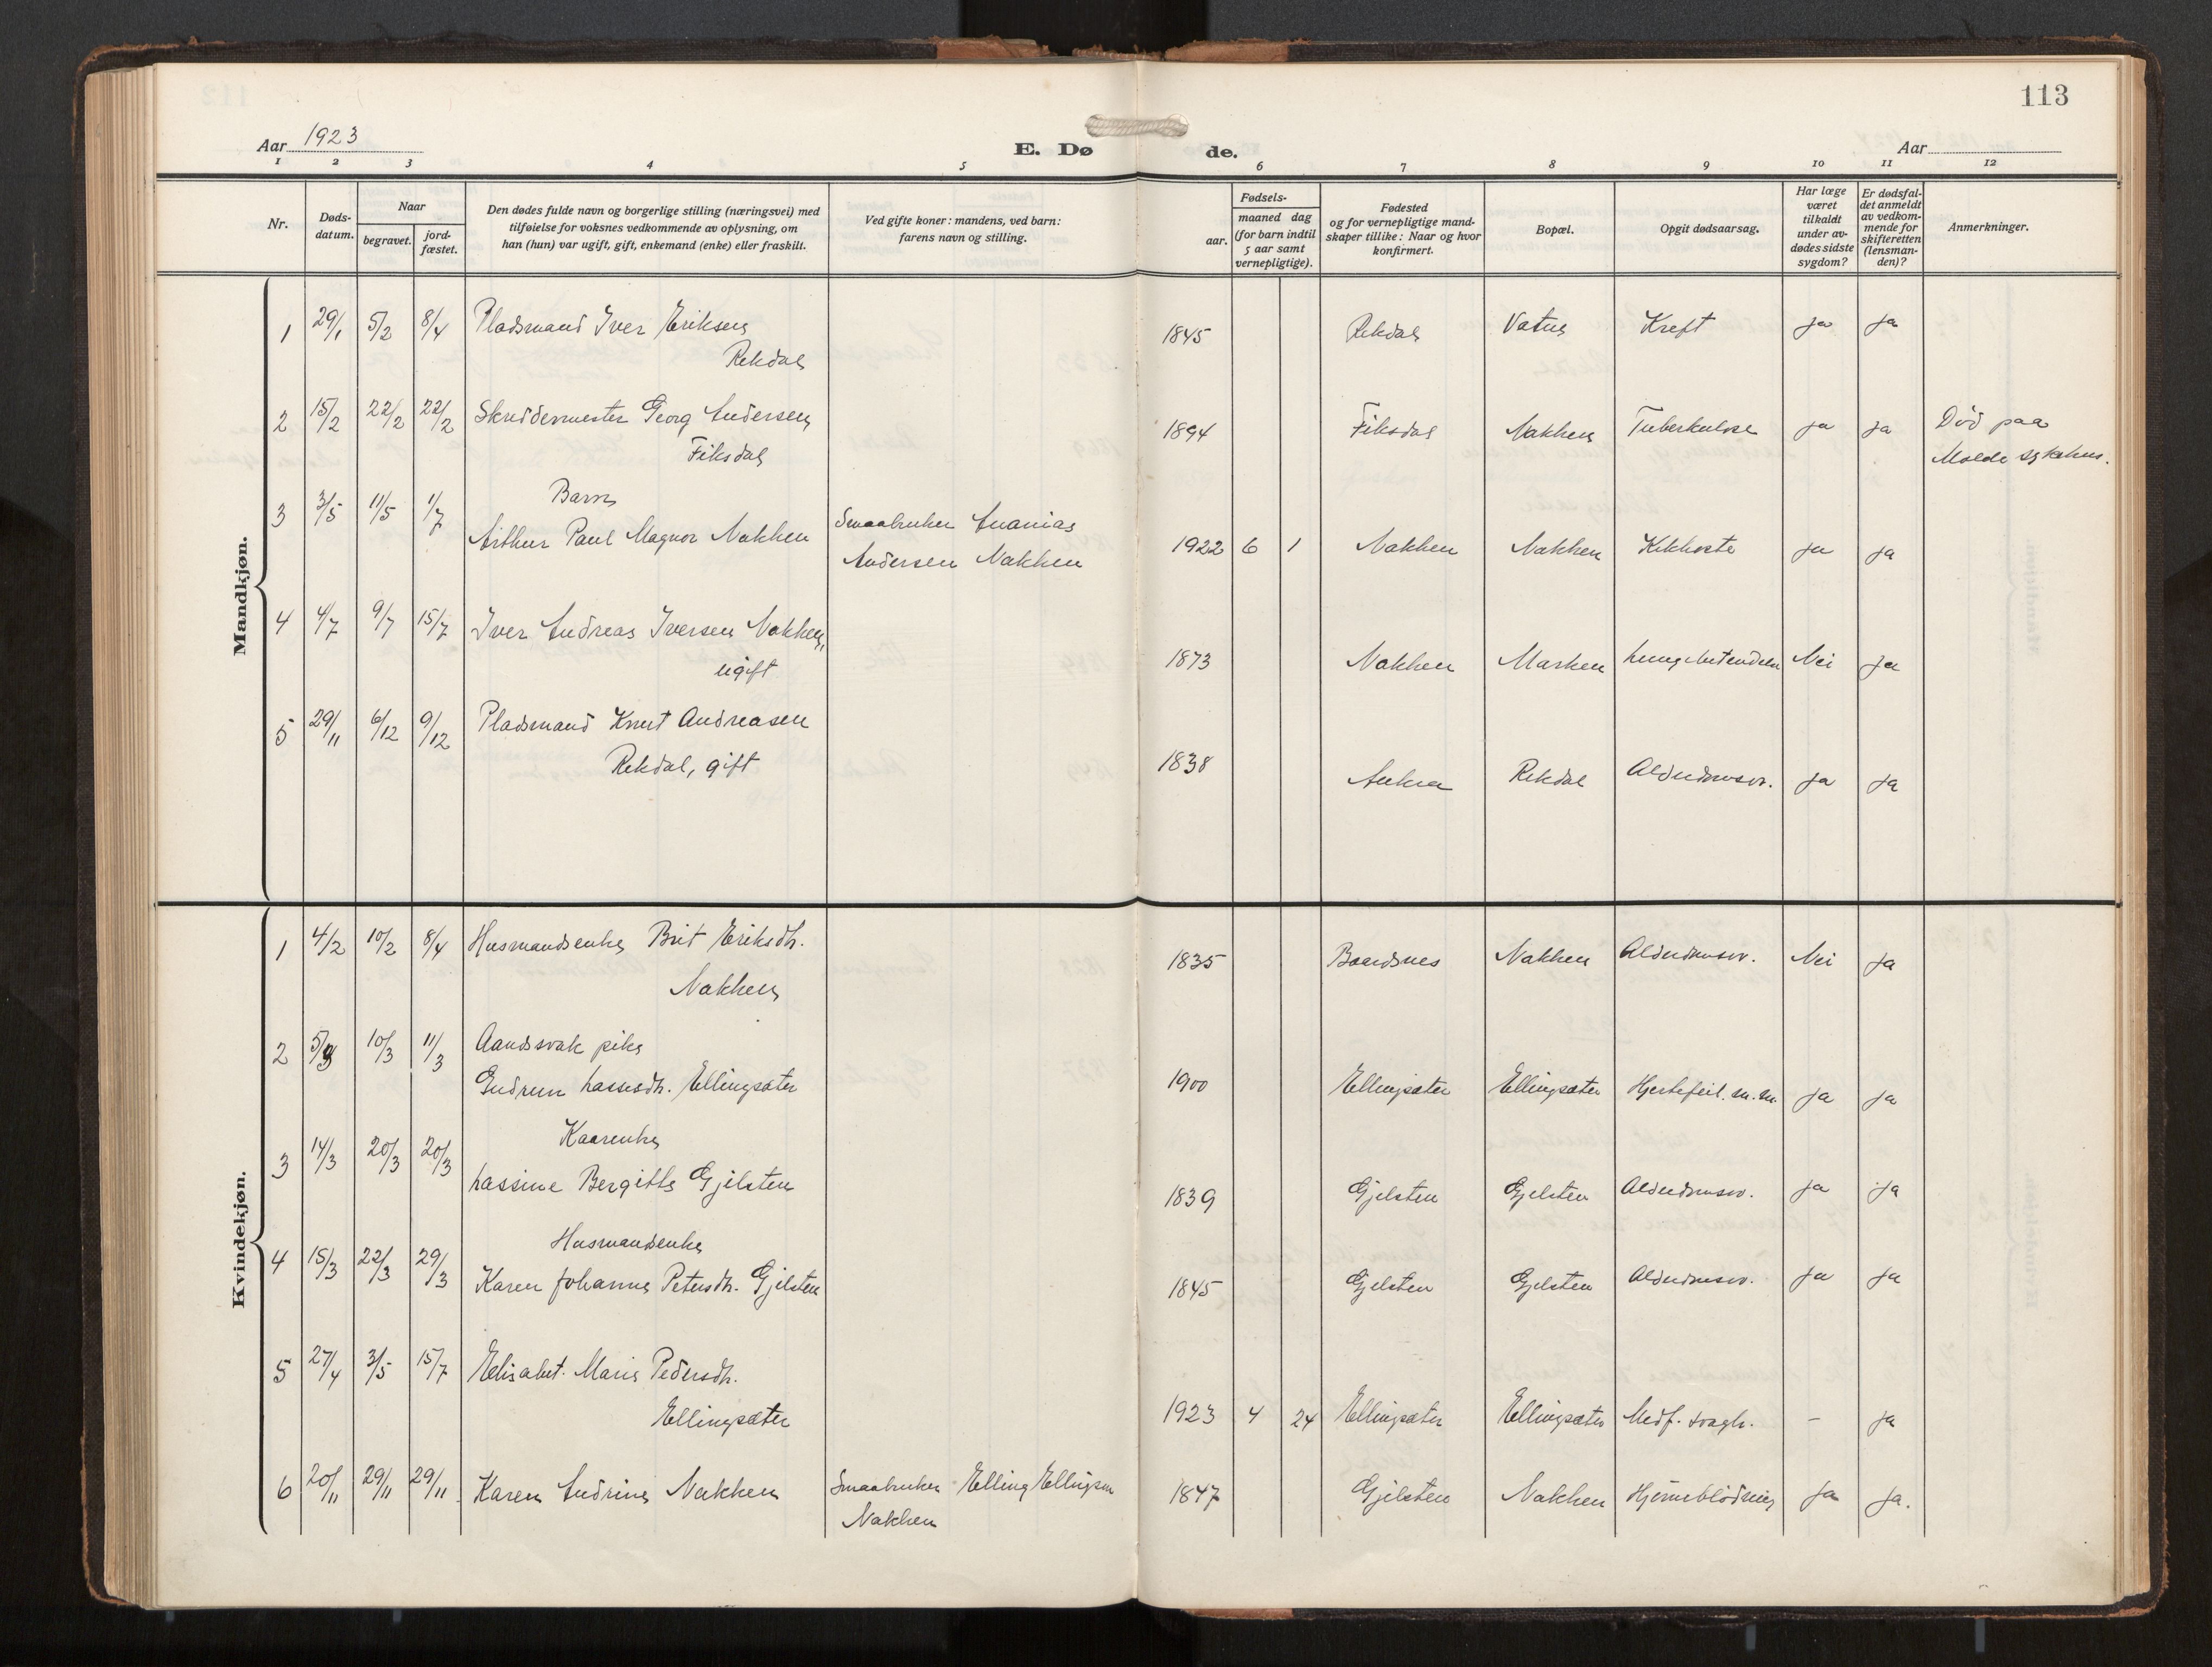 113
Aar 1923
E. Døde.
Aar
1 2 3 4 5 6 7 8 9 10 11 12
Nr.
Døds-
datum.
Naar
begravet.
jord-
fæstet.
Den dødes fulde navn og borgerlige stilling (næringsvei) med
tilføielse for voksnes vedkommende av oplysning, om
han (hun) var ugift, gift, enkemand (enke) eller fraskilt.
Ved gifte koner: mandens, ved barn:
farens navn og stilling.
Fødsels-
aar.
maaned dag
(for barn indtil
5 aar samt
vernepligtige).
Fødested
og for vernepligtige mand-
skaper tillike: Naar og hvor
konfirmert.
Bopæl.
Opgit dødsaarsag.
Har læge
været
tilkaldt
under av-
dødes sidste
sygdom?
Er dødsfal-
det anmeldt
av vedkom-
mende for
skifteretten
(lensman-
den)?
Anmerkninger.
Mandkjøn.
1 29/1 5/2 8/4 Pladsmand Iver Eriksen 1845 Rekdal Vatne Kreft ja ja
Rekdal
2 15/2 22/2 22/2 Skreddermester Georg Andersen 1894 Fiksdal Nakken Tuberkulose ja ja Död paa
Fiksdal Molde sykehus.
Barn
3 3/5 11/5 1/7 Arthur Paul Magnor Nakken Smaabruker Ananias 1922 6 1 Nakken Nakken Kikhoste ja ja
Andersen Nakken
4 4/7 9/7 15/7 Iver Andreas Iversen Nakken, 1873 Nakken Marken Lungebetendelse Nei ja
ugift
5 29/11 6/12 9/12 Pladsmand Knut Andreasen 1838 Aukra Rekdal Alderdomssv. ja ja
Rekdal, gift
Kvindekjøn.
1 4/2 10/2 8/4 Husmandsenke Brit Eriksdtr. 1835 Baardsnes Nakken Alderdomssv. Nei ja
Nakken
2 5/3 10/3 11/3 Aandssvak pike
Gudrun Lassesdtr. Ellingsæter 1900 Ellingsæter Ellingsæter Hjertefeil. m. m. ja ja
Kaarenke
3 14/3 20/3 20/3 Lassine Bergitte Gjelsten 1839 Gjelsten Gjelsten Alderdomssv. ja ja
Husmandsenke
4 15/3 22/3 29/3 Karen Johanne Petersdtr. Gjelsten 1845 Gjelsten Gjelsten Alderdomssv. ja ja
5 27/4 3/5 15/7 Elisabet Marie Pedersdtr.
Ellingsæter 1923 4 24 Ellingsæter Ellingsæter Medf. svagh. - ja
6 20/11 29/11 29/11 Karen Andrine Nakken Smaabruker Elling Ellingsen 1847 Gjelsten Nakken Hjerneblödning ja ja.
Nakken